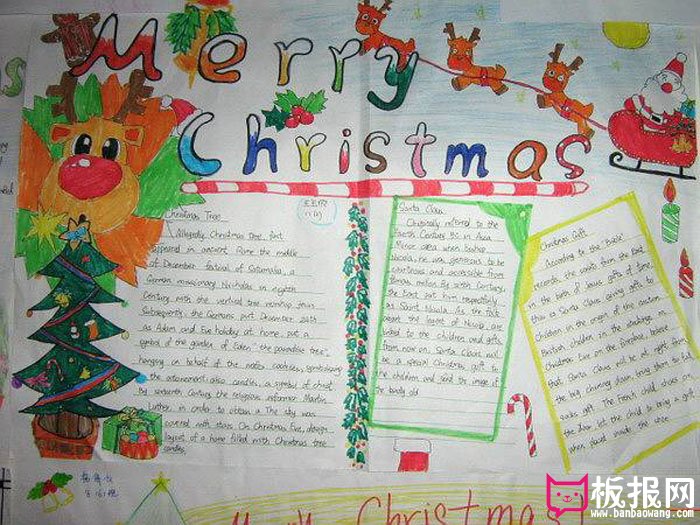 Merry
Christmas
Christmas Tree
Allegedly Christmas tree first
appeared in ancient Rome the middle
of December festival of Saturnalia, a
German missionary Nicholas in eighth
Century with the vertical tree
Subsequently, the Germans put December 24th
as Adam and Eve holiday at home put a
symbol of the garden of Eden "the paradise tree",
hanging on behalf of the cookies, symbolizing
the atonement: also candles, a symbol of christ
by sixteenth Century, the religious reformer Martin
Luther, in order to obtain a The sky was
covered with stars On Christmas Eve, design
layout of a home filled with Christmas tree
candles.
Santa Claus
referred to the
Fourth Century BC in Asia
Minor area when bishop
Nicola, he was generous to be
courteous and accessible from
Roman
the East part him respectfully
as Saint Nicola. As the fact
linked to the children and gifts,
from now on, Santa Claus will
be a special Christmas gift to
the children and send the image of
the kindly old
Christmas Gift
According to the "Bible"
records, the from the East
in the birth of Jesus gifts of time,
this is Santa Claus giving gifts to
Children in the origin of the custom
British children in the stockings on
Christmas Eve on the fireplace, believe
that Santa Claus will be at night from
the big chimney down, bring them to
gift. The French child shoes on
the door, let the child to bring a gift
when placed inside the shoe
Merry Christmas
板报网
www.banbaowang.com